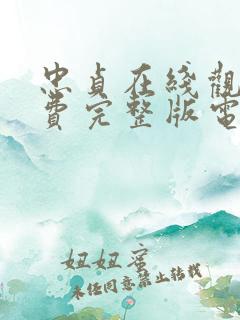 忠貞在綫觀
費完整版電
妞妞蜜
未经同意禁止转载